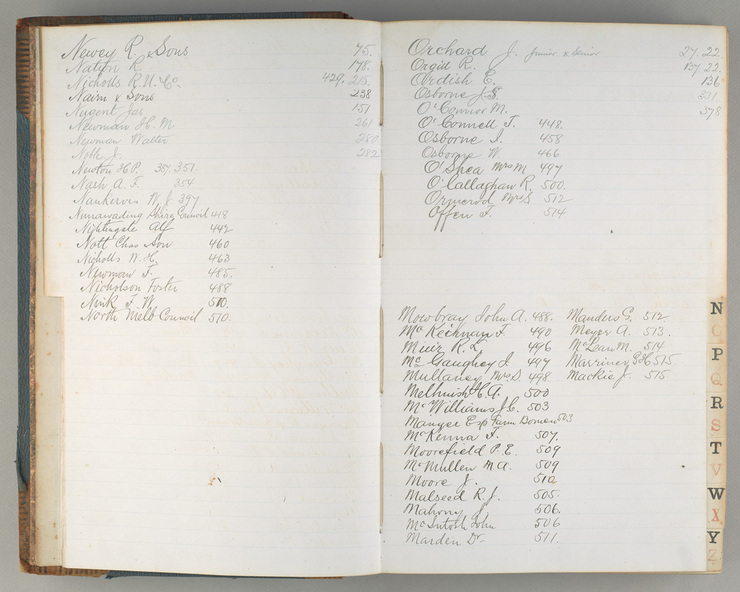 Newey R. & Sons 75.
R. 178.
Nicholls R.U. & Co 429, 215.
Nairn & Sons 238
Nugent Jas 151
Newman H. M. 261
Newman Walter 280
Nott J. 282
Newton H.P. 351
Nash A. F. 354
Nankervis W. J. 397
Nunawading Shire Council 418
Nightingale Alf 442
Nott Chas Son 460
Nicholls W. H. 463
Newman F. 485.
Nicholson Foster 488
Nink F. W. 510.
North Melb Council 510.
Orchard J. Junior & Senior 27. 22.
R. 137. 22.
Ordish E. 136
Osborne J. S. 331
O'Connor M. 378
O'Connell T. 448.
Osborne I. 458
Osborne W. 466
O'Shea Mrs M 497
O'Callaghan R. 500.
Ormerod Mrs S 512
Offen F. 514
Mowbray John A. 488.
McKechnan F. 490
Muir R. L. 496
McGaughey I 497
Mullaney Mrs D. 498
Melhuish H. A. 500
McWilliams J. C. 503
Manger Exp Farm 503
McKenna F. 507.
Moorefield P. E. 509
McMullen M A. 509
Moore J. 510
Malseed R. J. 505.
Mahony J. 506.
McIntosh John 506
Marden D. 511.
Manders G. 512
Meyer A. 513.
McLean M. 514
Warriner G H 515
Mackie J. 515
N
O
P
Q
R
S
T
V
W
X
Y
Z